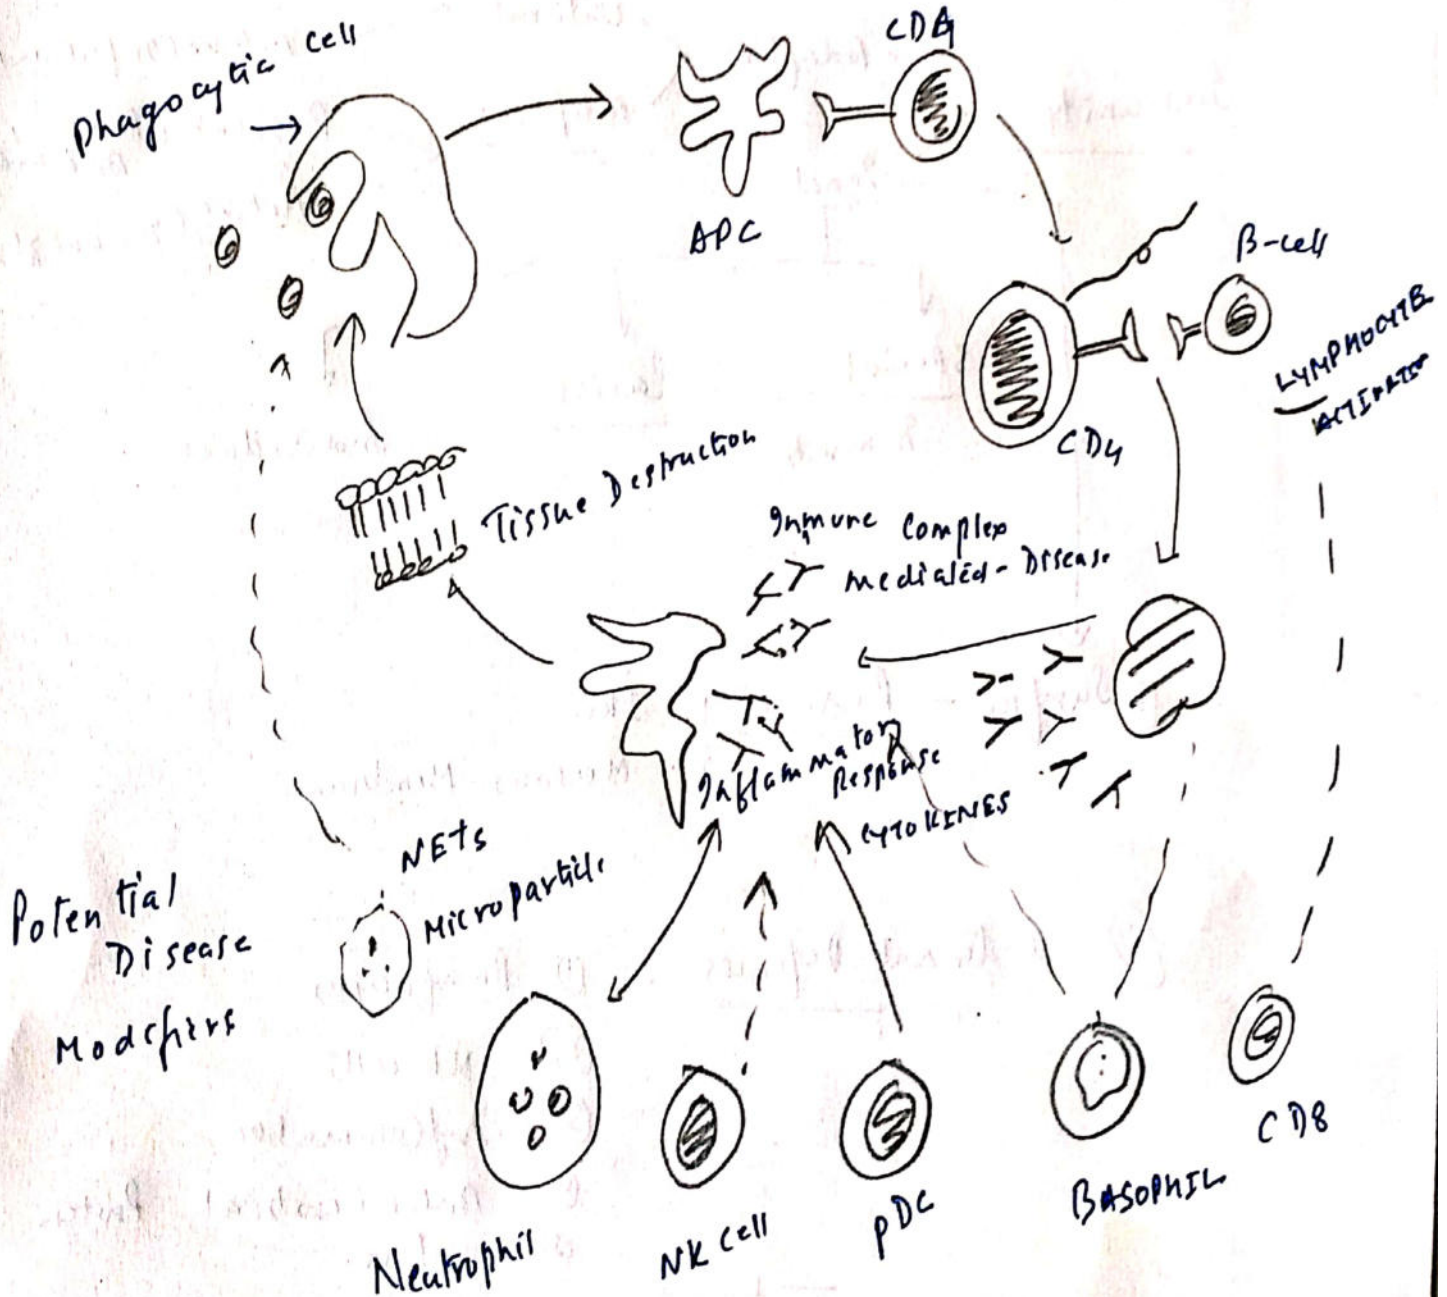 Phagocytic Cell
CD4
APC
B-cell
CD4
LYMPHOCYTE
Tissue Destruction
Immune Complex
mediated - Disease
Inflammatory
Response
CYTOKINES
NETs
Microparticle
Potential
Disease
Modifiers
Neutrophil
NK Cell
pDC
BASOPHIL
CD8